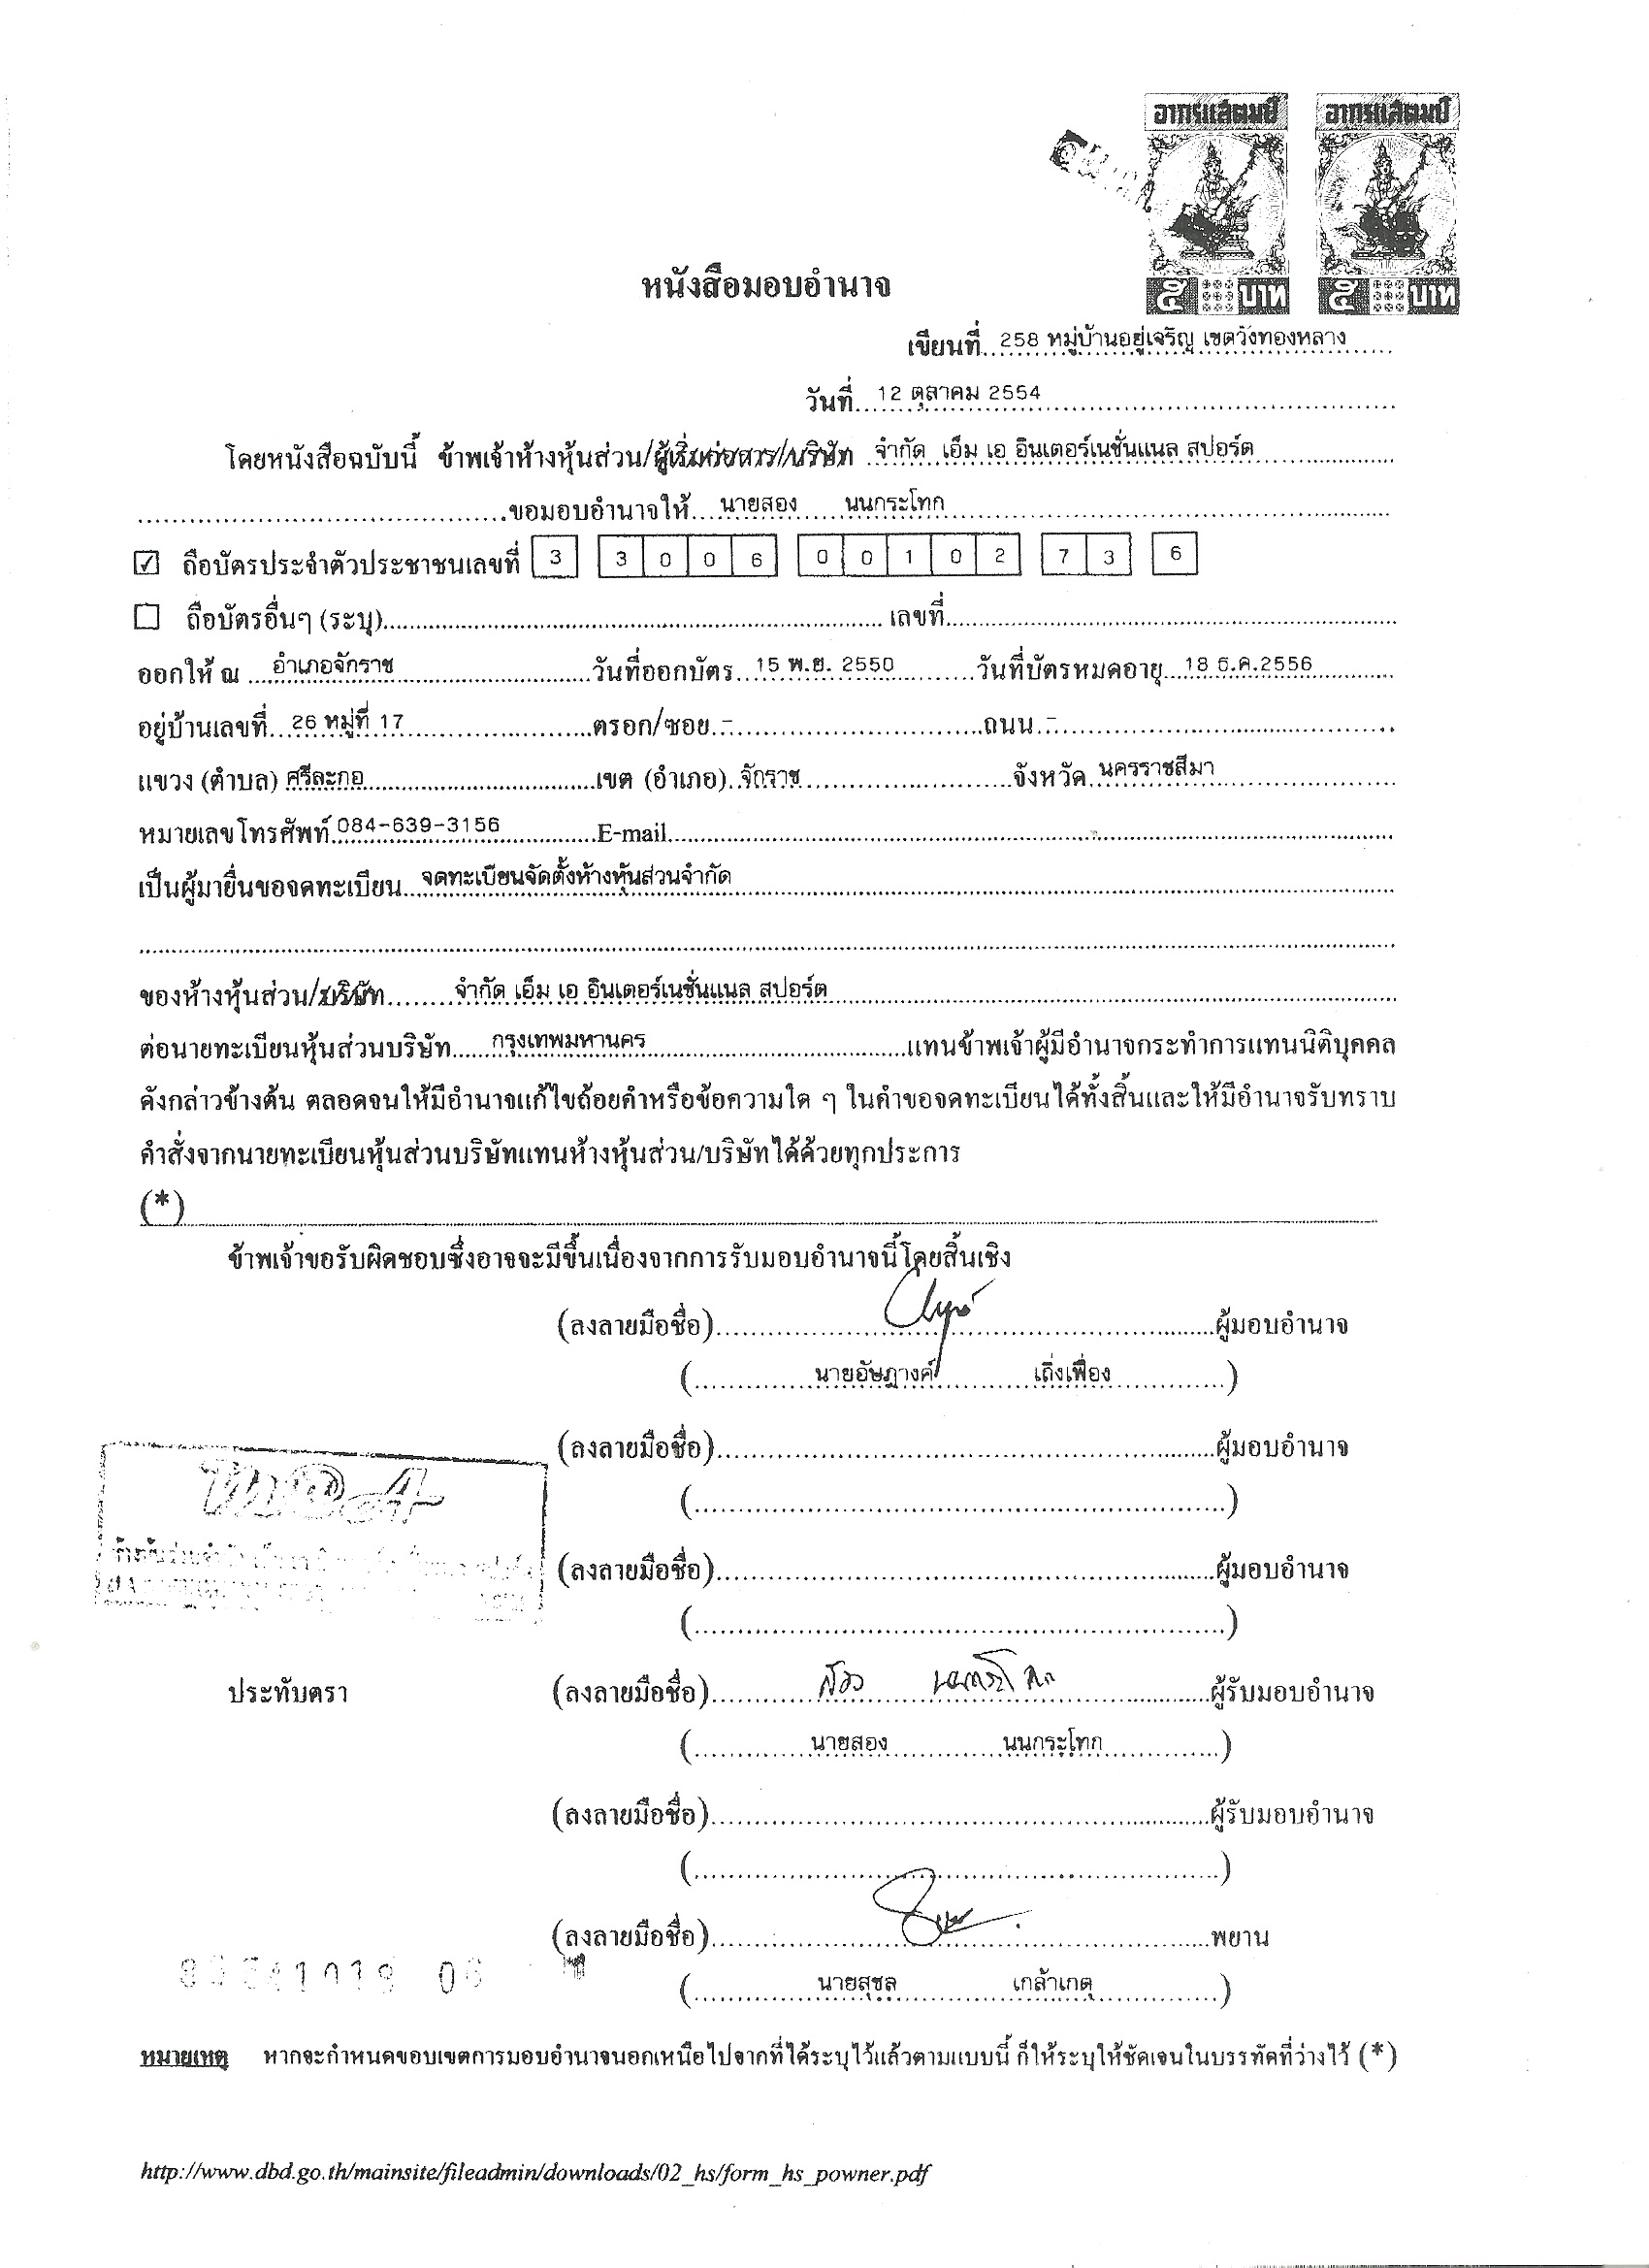 อากรแสตมป์ อากรแสตมป์
๕ บาท ๕ บาท
หนังสือมอบอำนาจ
เขียนที่ 258 หมู่บ้านอยู่เจริญ เขตวังทองหลาง
วันที่ 12 ตุลาคม 2554
โดยหนังสือฉบับนี้ ข้าพเจ้าห้างหุ้นส่วน/ผู้เริ่มก่อการ/บริษัท จำกัด เอ็ม เอ อินเตอร์เนชั่นแนล สปอร์ต
ขอมอบอำนาจให้ นายสอง นนกระโทก
☑ ถือบัตรประจำตัวประชาชนเลขที่ 3 3 0 0 6 0 0 1 0 2 7 3 6
☐ ถือบัตรอื่นๆ (ระบุ) เลขที่
ออกให้ ณ อำเภอจักราช วันที่ออกบัตร 15 พ.ย. 2550 วันที่บัตรหมดอายุ 18 ธ.ค.2556
อยู่บ้านเลขที่ 26 หมู่ที่ 17 ตรอก/ซอย - ถนน -
แขวง (ตำบล) ศรีละกอ เขต (อำเภอ) จักราช จังหวัด นครราชสีมา
หมายเลขโทรศัพท์ 084-639-3156 E-mail
เป็นผู้มายื่นขอจดทะเบียน จดทะเบียนจัดตั้งห้างหุ้นส่วนจำกัด
ของห้างหุ้นส่วน/บริษัท จำกัด เอ็ม เอ อินเตอร์เนชั่นแนล สปอร์ต
ต่อนายทะเบียนหุ้นส่วนบริษัท กรุงเทพมหานคร แทนข้าพเจ้าผู้มีอำนาจกระทำการแทนนิติบุคคล
ดังกล่าวข้างต้น ตลอดจนให้มีอำนาจแก้ไขถ้อยคำหรือข้อความใด ๆ ในคำขอจดทะเบียนได้ทั้งสิ้นและให้มีอำนาจรับทราบ
คำสั่งจากนายทะเบียนหุ้นส่วนบริษัทแทนห้างหุ้นส่วน/บริษัทได้ด้วยทุกประการ
(*)
ข้าพเจ้าขอรับผิดชอบซึ่งอาจจะมีขึ้นเนื่องจากการรับมอบอำนาจนี้โดยสิ้นเชิง
(ลงลายมือชื่อ) ผู้มอบอำนาจ
( นายอัษฎางค์ เถิ่งเฟื่อง )
(ลงลายมือชื่อ) ผู้มอบอำนาจ
( )
(ลงลายมือชื่อ) ผู้มอบอำนาจ
( )
ประทับตรา (ลงลายมือชื่อ) สอง นนกระโทก ผู้รับมอบอำนาจ
( นายสอง นนกระโทก )
(ลงลายมือชื่อ) ผู้รับมอบอำนาจ
( )
(ลงลายมือชื่อ) พยาน
( นายสุชล เกล้าเกตุ )
หมายเหตุ หากจะกำหนดขอบเขตการมอบอำนาจนอกเหนือไปจากที่ได้ระบุไว้แล้วตามแบบนี้ ก็ให้ระบุให้ชัดเจนในบรรทัดที่ว่างไว้ (*)
http://www.dbd.go.th/mainsite/fileadmin/downloads/02_hs/form_hs_powner.pdf